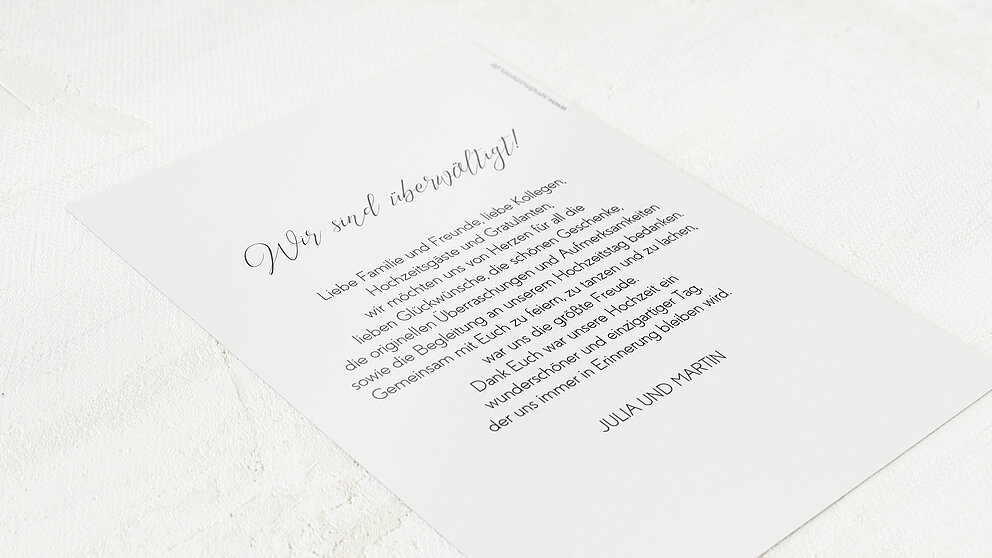 Wir sind überwältigt!
Liebe Familie und Freunde, liebe Kollegen,
Hochzeitsgäste und Gratulanten,
wir möchten uns von Herzen für all die
lieben Glückwünsche, die schönen Geschenke,
die originellen Überraschungen und Aufmerksamkeiten
sowie die Begleitung an unserem Hochzeitstag bedanken.
Gemeinsam mit Euch zu feiern, zu tanzen und zu lachen,
war uns die größte Freude.
Dank Euch war unsere Hochzeit ein
wunderschöner und einzigartiger Tag,
der uns immer in Erinnerung bleiben wird.
JULIA UND MARTIN